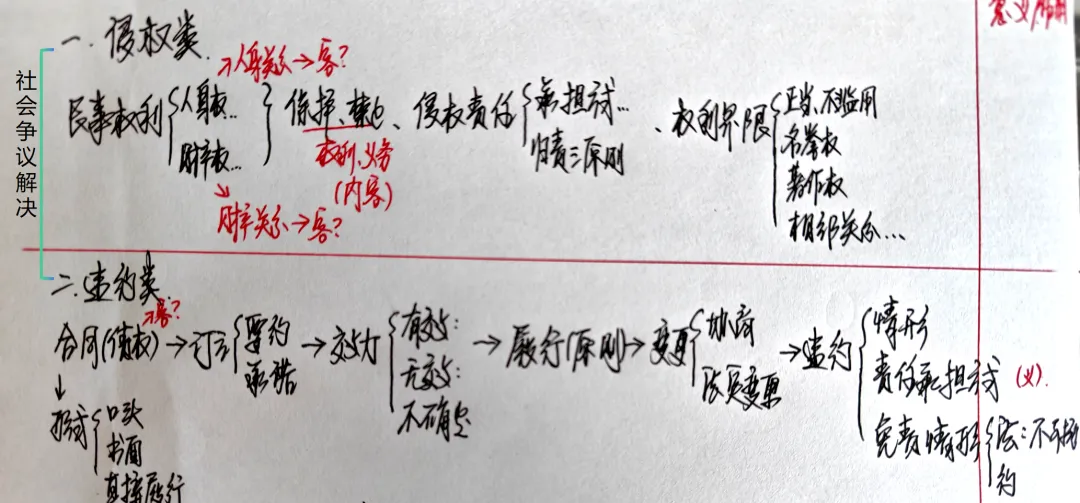 社会争议解决
意义/作用
一、侵权类
→人身关系→客?
民事权利
人身权…
财产权…
保护、救济、侵权责任
承担方式…
归责三原则
、权利界限
正当、不滥用
名誉权
著作权
相邻关系…
权利、义务
(内容)
财产关系→客?
二、违约类
→客?
合同(债权)→订立
要约
承诺
→效力
有效:
无效:
不确定
→履行(原则)→变更
协商
法定变更
→违约
情形
责任承担方式 (义).
免责情形
法:不可抗
约
形式
口头
书面
直接履行